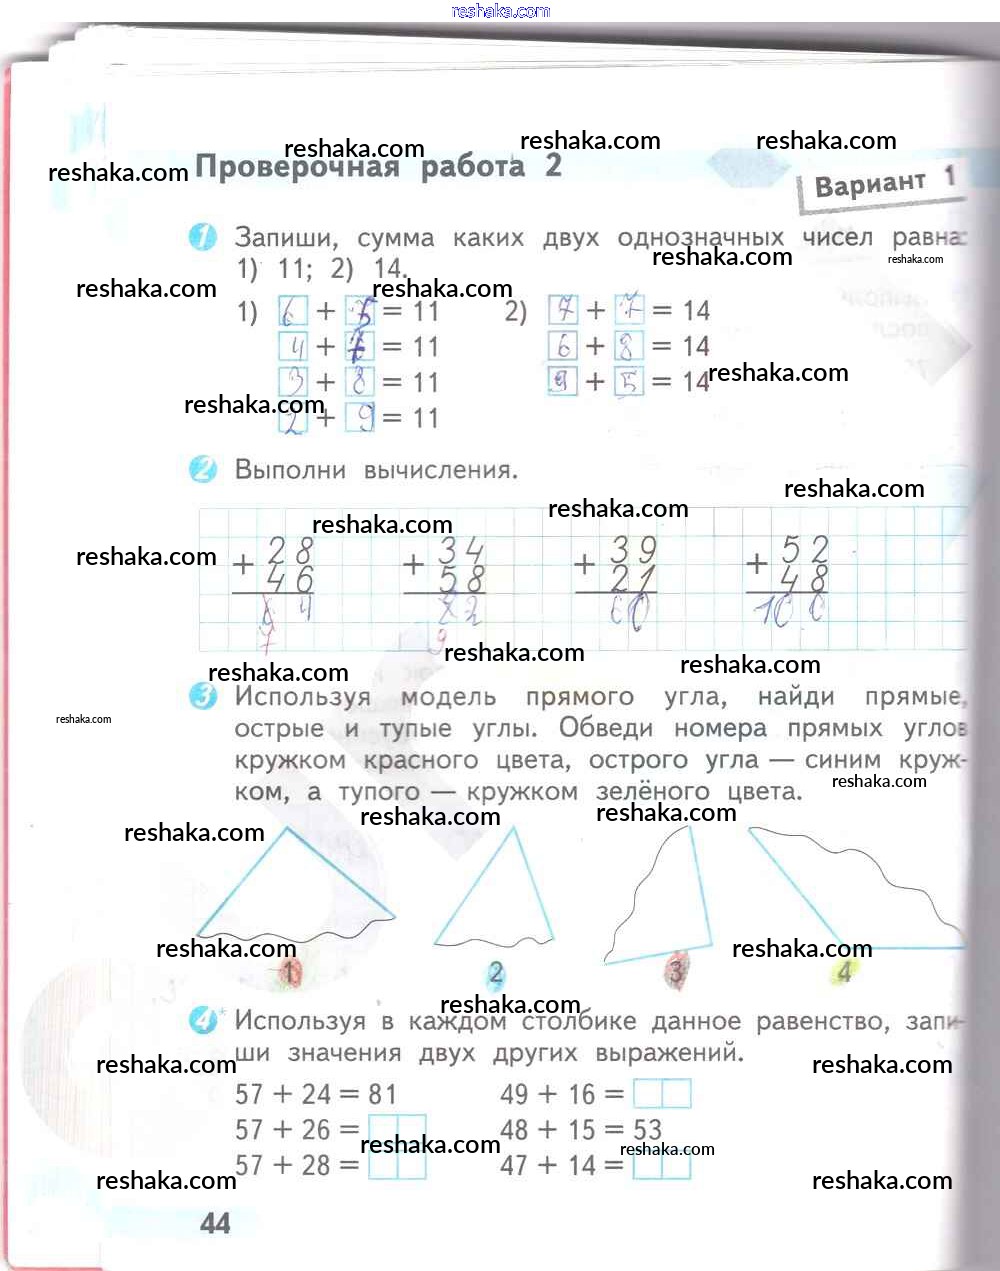 reshaka.com
reshaka.com reshaka.com reshaka.com
reshaka.com
Проверочная работа 2
Вариант 1
1 Запиши, сумма каких двух однозначных чисел равна:
reshaka.com reshaka.com
1) 11; 2) 14.
reshaka.com reshaka.com
1) 6 + 5 = 11 2) 7 + 7 = 14
4 + 7 = 11 6 + 8 = 14
3 + 8 = 11 9 + 5 = 14
reshaka.com
reshaka.com
2 + 9 = 11
2 Выполни вычисления.
reshaka.com
reshaka.com reshaka.com
reshaka.com
+ 28 + 34 + 39 + 52
46 58 21 48
4 82 60 100
7 9
reshaka.com reshaka.com reshaka.com
3 Используя модель прямого угла, найди прямые,
reshaka.com
острые и тупые углы. Обведи номера прямых углов
кружком красного цвета, острого угла — синим круж-
reshaka.com
ком, а тупого — кружком зелёного цвета.
reshaka.com reshaka.com reshaka.com
reshaka.com reshaka.com
1 2 3 4
reshaka.com
4* Используя в каждом столбике данное равенство, запи-
ши значения двух других выражений.
reshaka.com reshaka.com
57 + 24 = 81 49 + 16 =
57 + 26 = 48 + 15 = 53
reshaka.com reshaka.com
57 + 28 = 47 + 14 =
reshaka.com reshaka.com
44